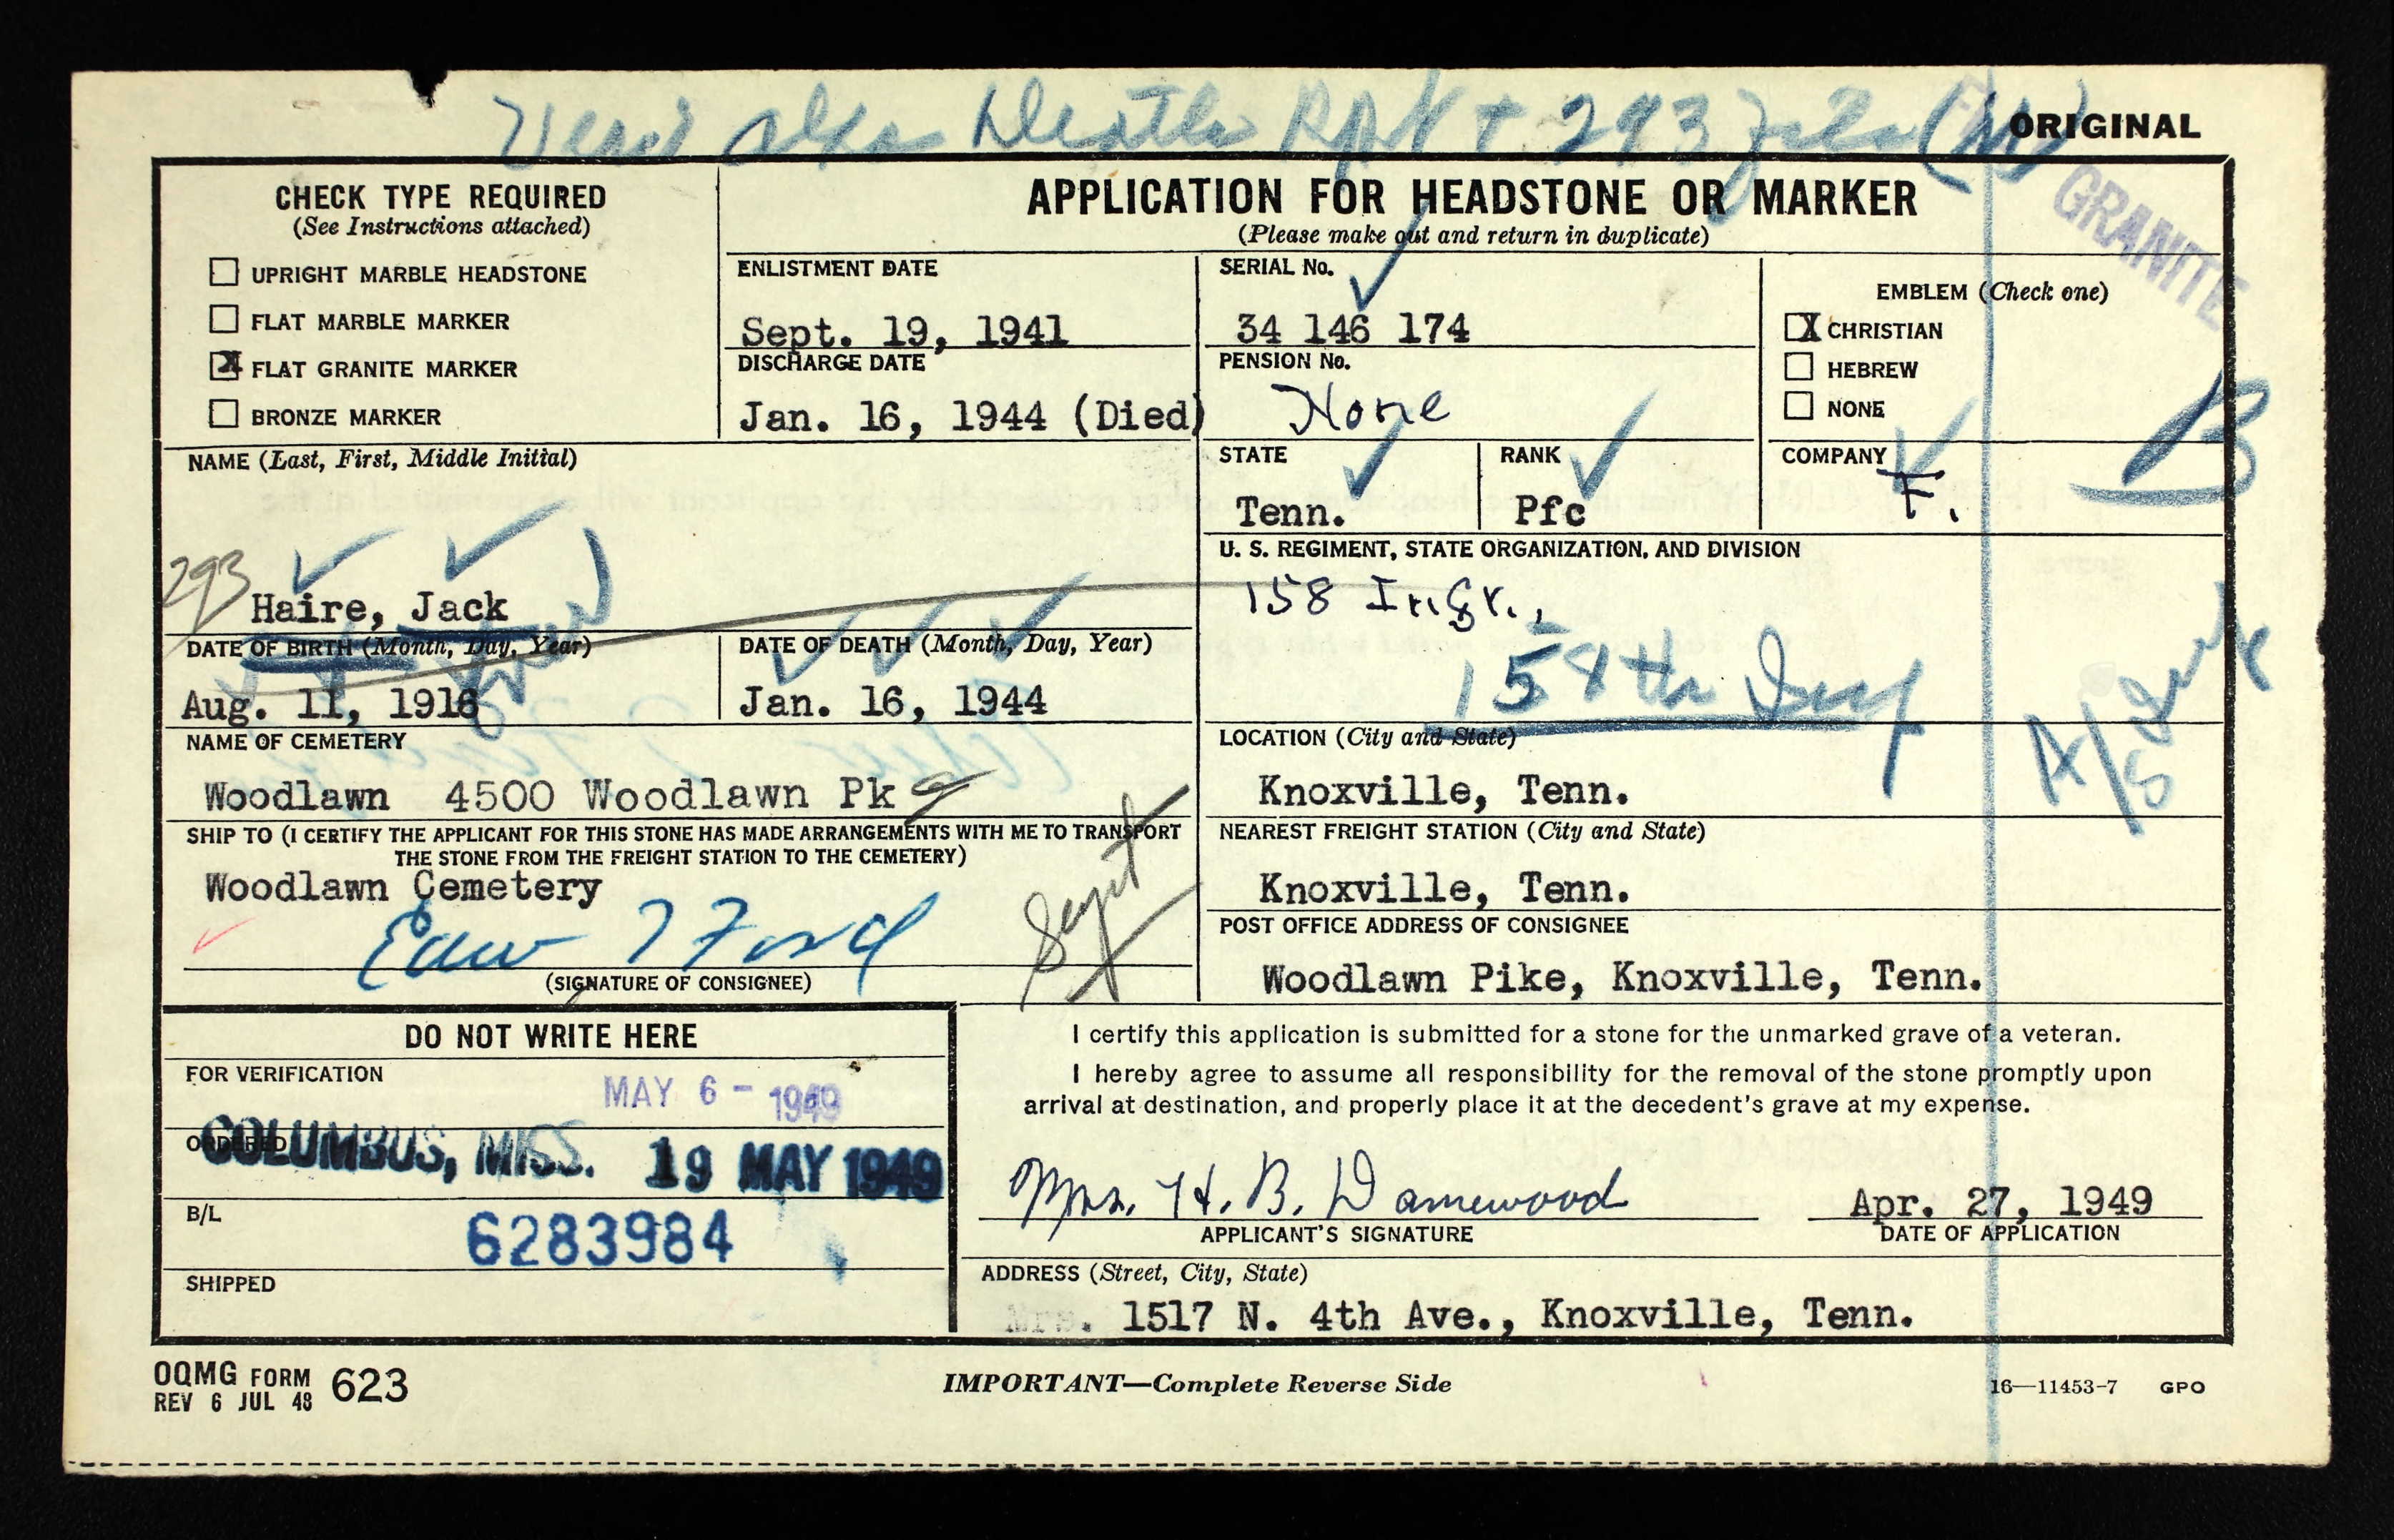 Death Rpt + 293 file
ORIGINAL
GRANITE
CHECK TYPE REQUIRED
(See Instructions attached)
UPRIGHT MARBLE HEADSTONE
FLAT MARBLE MARKER
X FLAT GRANITE MARKER
BRONZE MARKER
APPLICATION FOR HEADSTONE OR MARKER
(Please make out and return in duplicate)
ENLISTMENT DATE
Sept. 19, 1941
DISCHARGE DATE
Jan. 16, 1944 (Died)
SERIAL No.
34 146 174
PENSION No.
None
EMBLEM (Check one)
X CHRISTIAN
HEBREW
NONE
B
NAME (Last, First, Middle Initial)
293
Haire, Jack
STATE
Tenn.
RANK
Pfc
COMPANY
F.
U. S. REGIMENT, STATE ORGANIZATION, AND DIVISION
158 Infr.,
158th Inf
DATE OF BIRTH (Month, Day, Year)
Aug. 11, 1916
DATE OF DEATH (Month, Day, Year)
Jan. 16, 1944
NAME OF CEMETERY
Woodlawn 4500 Woodlawn Pk
LOCATION (City and State)
Knoxville, Tenn.
SHIP TO (I CERTIFY THE APPLICANT FOR THIS STONE HAS MADE ARRANGEMENTS WITH ME TO TRANSPORT
THE STONE FROM THE FREIGHT STATION TO THE CEMETERY)
Woodlawn Cemetery
(SIGNATURE OF CONSIGNEE)
Supt
NEAREST FREIGHT STATION (City and State)
Knoxville, Tenn.
POST OFFICE ADDRESS OF CONSIGNEE
Woodlawn Pike, Knoxville, Tenn.
DO NOT WRITE HERE
FOR VERIFICATION
MAY 6 - 1949
ORDERED
COLUMBUS, MISS. 19 MAY 1949
B/L
6283984
SHIPPED
I certify this application is submitted for a stone for the unmarked grave of a veteran.
I hereby agree to assume all responsibility for the removal of the stone promptly upon
arrival at destination, and properly place it at the decedent's grave at my expense.
Mrs. H. B. Damewood
APPLICANT'S SIGNATURE
Apr. 27, 1949
DATE OF APPLICATION
ADDRESS (Street, City, State)
Mrs. 1517 N. 4th Ave., Knoxville, Tenn.
OQMG FORM 623
REV 6 JUL 48
IMPORTANT—Complete Reverse Side
16—11453-7 GPO